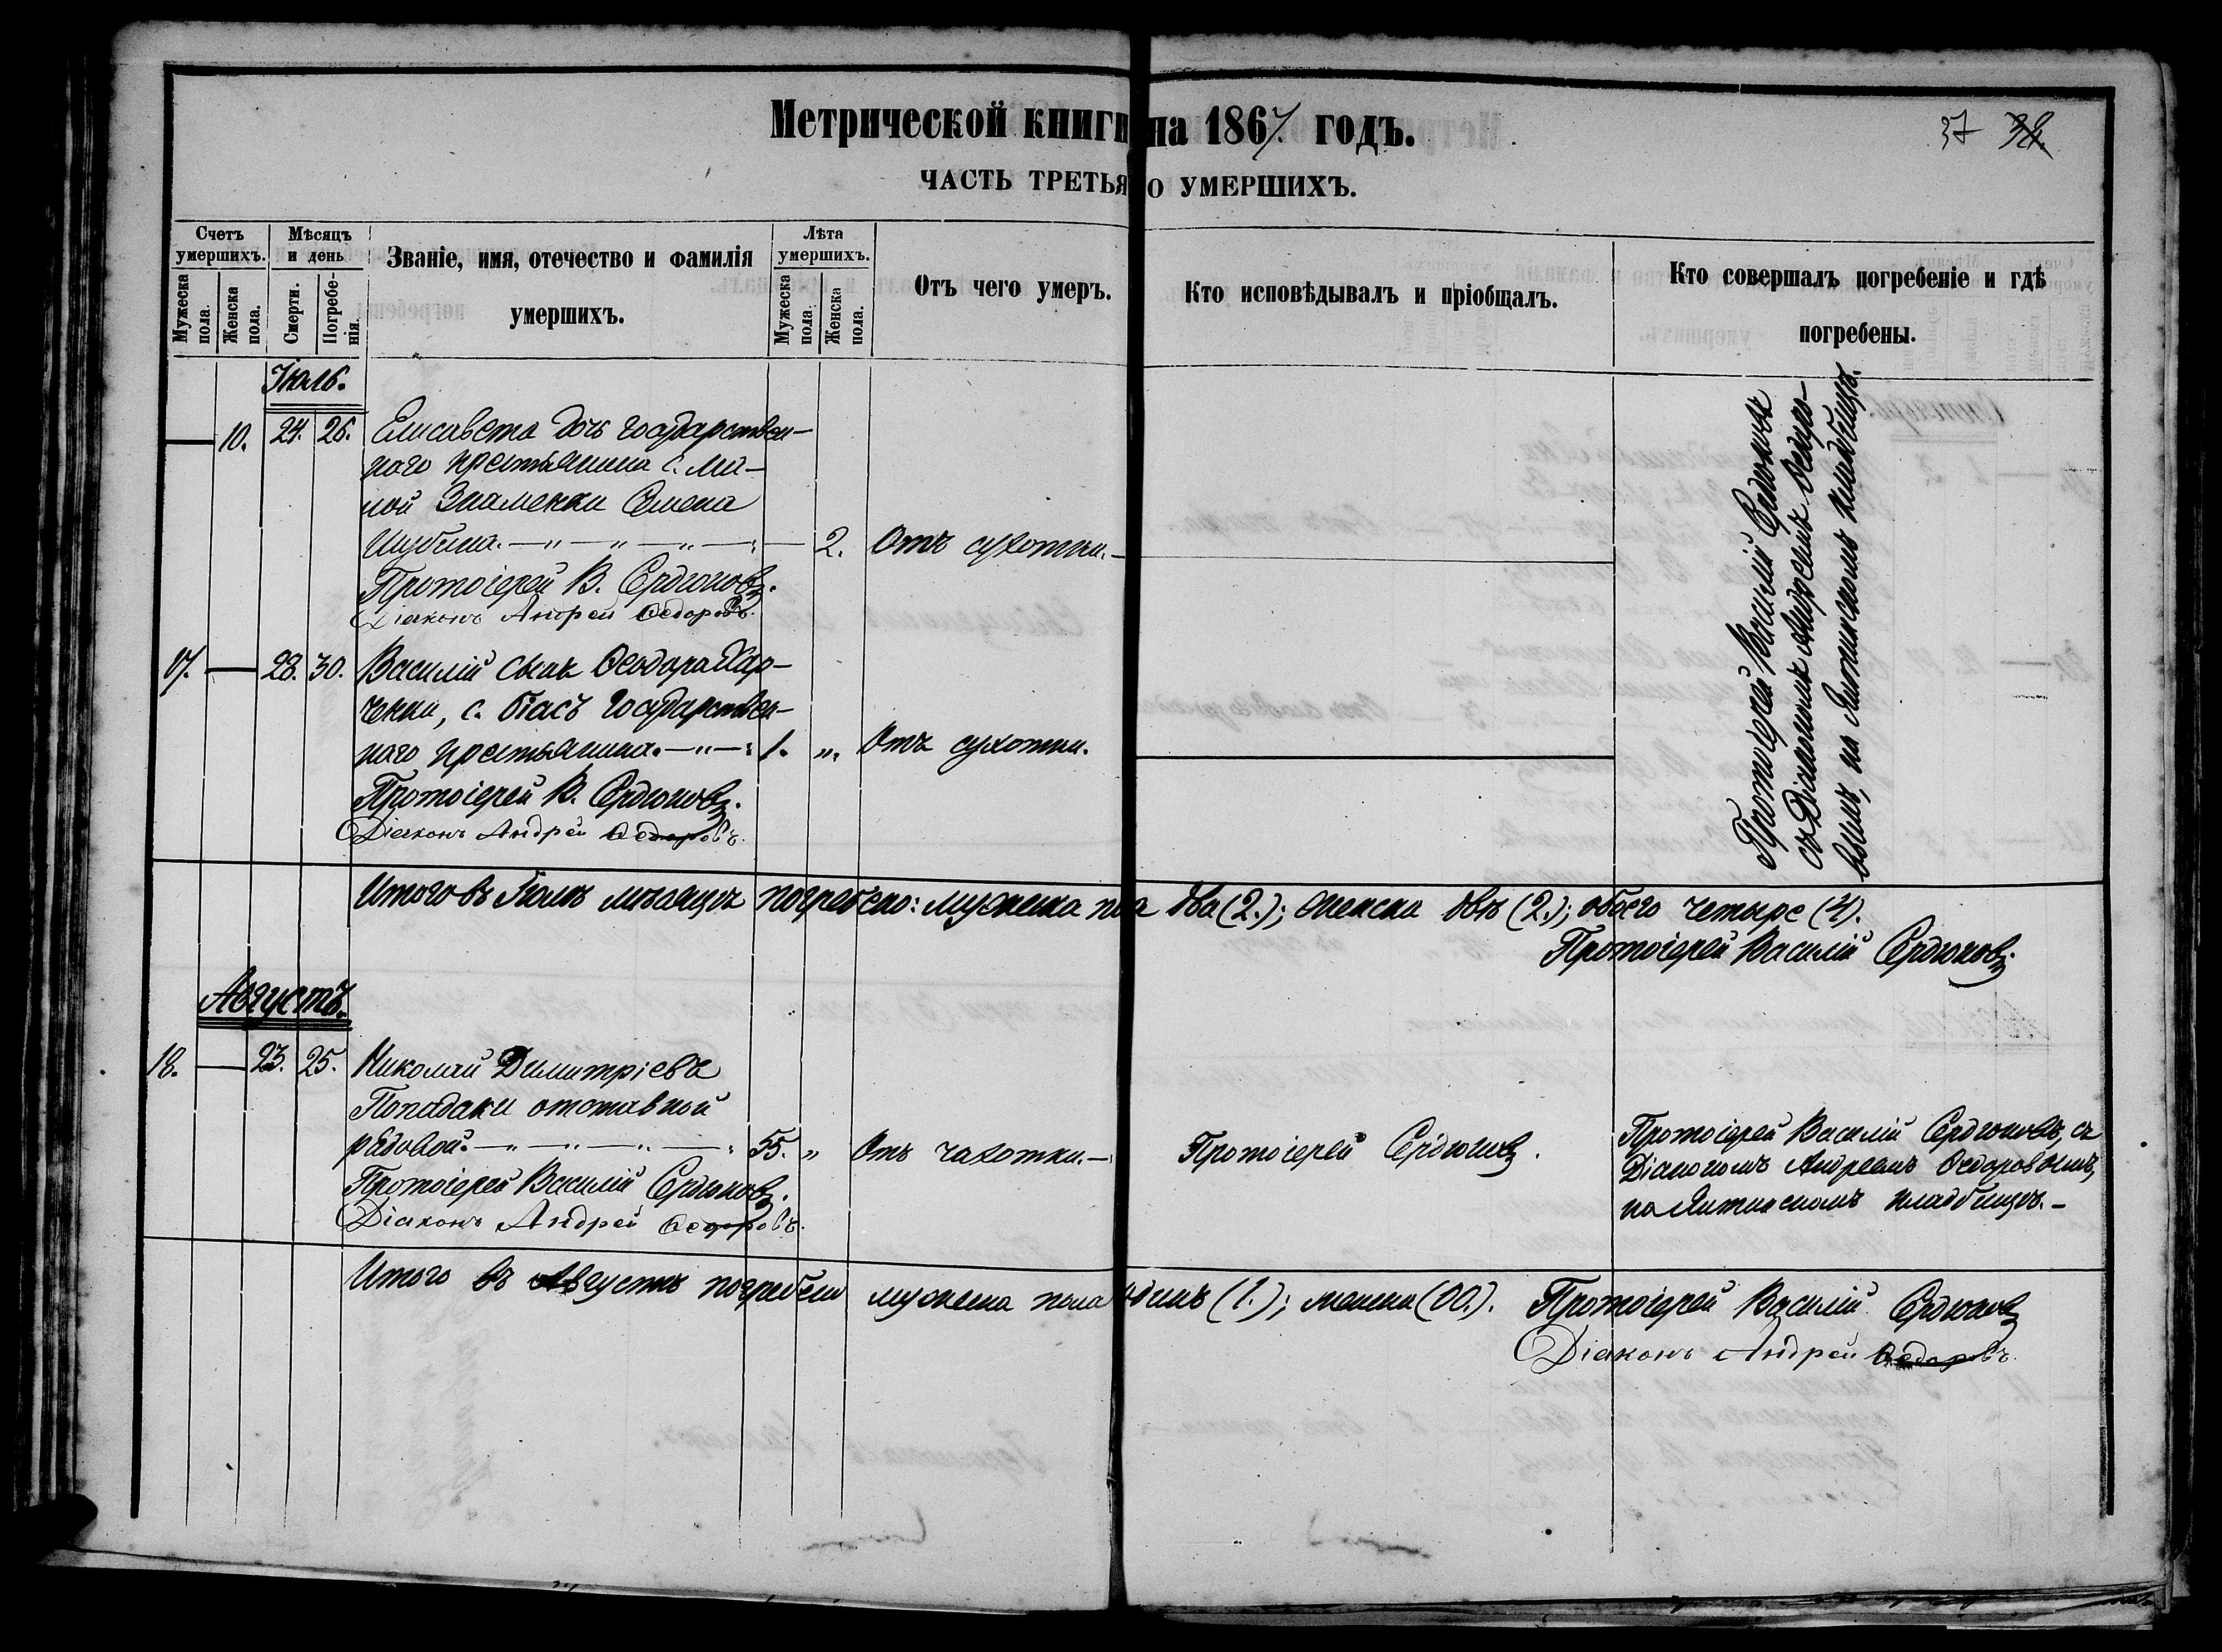 Метрической книги на 1867 годъ.
37 38.
ЧАСТЬ ТРЕТЬЯ О УМЕРШИХЪ.
Счетъ умершихъ.
Мужеска пола.
Женска пола.
Мѣсяцъ и день
Смерти.
Погребенія.
Званіе, имя, отечество и фамилія умершихъ.
Лѣта умершихъ.
Мужеска пола.
Женска пола.
Отъ чего умеръ.
Кто исповѣдывалъ и пріобщалъ.
Кто совершалъ погребеніе и гдѣ погребены.
Іюль.
— 10. 24. 26. Елисавета дочь государствен-
наго крестьянина с. Ма-
лой Знаменки Семена
2. Отъ сухотки.
Протоіерей В. Сердюковъ.
Діаконъ Андрей Ѳедоровъ.
17. — 28. 30. Василій сынъ Ѳеодора Хар-
ченки, с. государствен-
наго крестьянина. 1. „ Отъ сухотки.
Протоіерей В. Сердюковъ.
Діаконъ Андрей Ѳедоровъ.
Протоіерей Василій Сердюковъ
съ Діакономъ Андреемъ Ѳедоро-
вымъ, на кладбищѣ.
Итого въ Іюлѣ мѣсяцѣ погребено: мужеска пола два (2.); женска двѣ (2.); обоего четыре (4).
Протоіерей Василій Сердюковъ.
Августъ.
18. — 23. 25. Николай Димитріевъ
Попадаки отставной
рядовой. 55. „ Отъ чахотки. Протоіерей Сердюковъ.
Протоіерей Василій Сердюковъ.
Діаконъ Андрей Ѳедоровъ.
Протоіерей Василій Сердюковъ, съ
Діакономъ Андреемъ Ѳедоровымъ,
на кладбищѣ.
Итого въ Августѣ погребен мужеска пола одинъ (1.); женска (00.). Протоіерей Василій Сердюковъ
Діаконъ Андрей Ѳедоровъ.